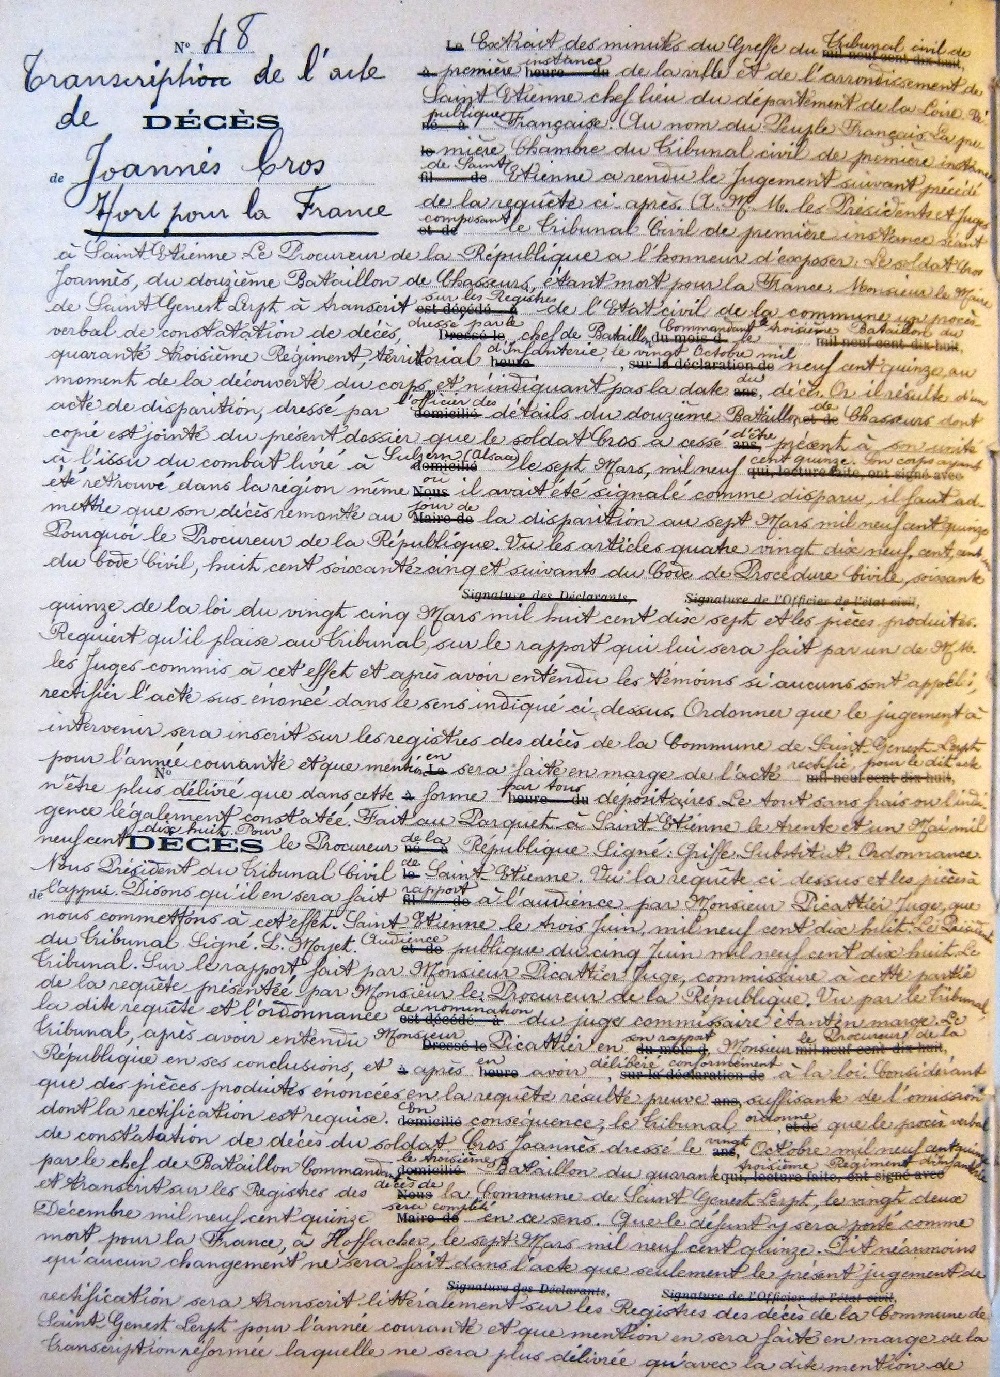 N° 48
Transcription de l'acte
de DÉCÈS
de Joannés Cros
Mort pour la France
Le Extrait des minutes du Greffe du Tribunal civil de mil neuf cent dix huit,
à première instance heure du de la ville et de l'arrondissement de
Saint Etienne chef lieu du département de la Loire Ré
publique né à Française. Au nom du Peuple Français La pre
le mière Chambre du Tribunal civil de première instance
de Saint fil de Etienne a rendu le Jugement suivant précédé
de la requête ci après. A. M. M. les Présidents et Juges
composant et de le Tribunal Civil de première instance séant
à Saint Etienne Le Procureur de la République a l'honneur d'exposer. Le soldat Cros
Joannès, du douzième Bataillon de Chasseurs, étant mort pour la France, Monsieur le Maire
de Saint Genest Lerpt à transcrit sur les Registres est décédé à de l'Etat civil de la commune un procès
verbal de constatation de décès, dressé par le Dressé le chef de Bataillon Commandant le troisième Bataillon du du mois d le mil neuf cent dix huit,
quarante troisième Régiment, térritorial d'Infanterie, le vingt Octobre mil heure , sur la déclaration de neuf cent quinze, au
moment de la découverte du corps, et n'indiquant pas la date du ans, décès. Or il résulte d'un
acte de disparition, dressé par l'officier des domicilié détails du douzième Bataillon de et de Chasseurs dont
copie est jointe du présent dossier que le soldat Cros a cessé d'être ans, présent à son unité
à l'issu du combat livré à Sulzern (Alsace) domicilié le sept Mars, mil neuf cent quinze. Son corps ayant qui, lecture faite, ont signé avec
été retrouvé dans la région même où Nous il avait été signalé comme disparu, il faut ad-
mettre que son décès remonte au jour de Maire de la disparition au sept Mars mil neuf cent quinze
Pourquoi le Procureur de la République. Vu les articles quatre vingt dix neuf, cent, cent
du Code Civil, huit cent soixante cinq et suivants du Code de Procédure Civile, soixante
Signature des Déclarants, Signature de l'Officier de l'état civil,
quinze de la loi du vingt cinq Mars mil huit cent dix sept et les pièces produites.
Requiert qu'il plaise au Tribunal, sur le rapport qui lui sera fait par un de M. M.
les Juges commis à cet effet et après avoir entendu les témoins si aucuns sont appelés,
rectifier l'acte sus énoncé dans le sens indiqué ci-dessus. Ordonner que le jugement à
intervenir sera inscrit sur les registres des décès de la Commune de Saint Genest Lerpt
pour l'année courante et que mention en Le sera faite en marge de l'acte rectifié, pour le dit acte mil neuf cent dix huit,
N°
n'être plus délivré que dans cette à forme par tous heure du dépositaires Le tout sans frais vu l'indi
gence légalement constatée. Fait au Parquet à Saint Etienne le trente et un Mai mil
neuf cent dix huit. Pour DÉCÈS le Procureur de la né à République Signé: Griffe. Substitut. Ordonnance.
Nous Président du Tribunal Civil de le Saint Etienne. Vu la requête ci dessus et les pièces à
de l'appui. Disons qu'il en sera fait rapport fil de à l'audience par Monsieur Picattier Juge, que
nous commettons à cet effet. Saint Etienne le trois Juin, mil neuf cent dix huit. Le Président
du Tribunal Signé. L. Moyet. Audience et de publique du cinq Juin mil neuf cent dix huit. Le
Tribunal. Sur le rapport fait par Monsieur Picattier Juge, commissaire à cette partie
de la requête présentée par Monsieur le Procureur de la République, Vu par le Tribunal,
la dite requête et l'ordonnance de nomination est décédé à du juge commissaire étant en marge. Le
Tribunal, après avoir entendu Monsieur Dressé le Picattier en son rapport du mois d Monsieur le Procureur de la mil neuf cent dix huit,
République en ses conclusions, et à après en heure avoir délibéré conformément , sur la déclaration de à la loi. Considérant
que des pièces produites énoncées en la requête résulte preuve ans, suffisante de l'omission
dont la rectification est requise. En domicilié conséquence, le Tribunal ordonne et de que le procès verbal
de constatation de décès du soldat Cros Joannès dressé le vingt ans, Octobre mil neuf cent quinze
par le chef de Bataillon Commandant le troisième domicilié Bataillon du quarante troisième Régiment d'infanterie qui, lecture faite, ont signé avec
et transcrit sur les Registres des décès de Nous la Commune de Saint Genest Lerpt, le vingt deux
Décembre mil neuf cent quinze sera complété Maire de en ce sens. Que le défunt y sera porté comme
mort pour la France, à Hoffacker, le sept Mars mil neuf cent quinze. Dit néanmoins
qu'aucun changement ne sera fait dans l'acte que seulement le présent jugement de
Signature des Déclarants, Signature de l'Officier de l'état civil,
rectification sera transcrit littéralement sur les Registres des décès de la Commune de
Saint Genest Lerpt pour l'année courante et que mention en sera faite en marge de la
transcription réformée laquelle ne sera plus délivrée qu'avec la dite mention de